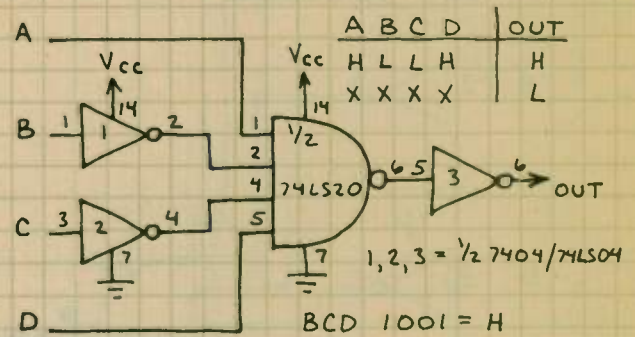 A B C D OUT
H L L H H
X X X X L
A
Vcc
14
B 1 1 2
Vcc
14
1 1/2
2
4 74LS20 6 5 3 6 OUT
5
7
C 3 2 4
7
1, 2, 3 = 1/2 7404/74LS04
D
BCD 1001 = H